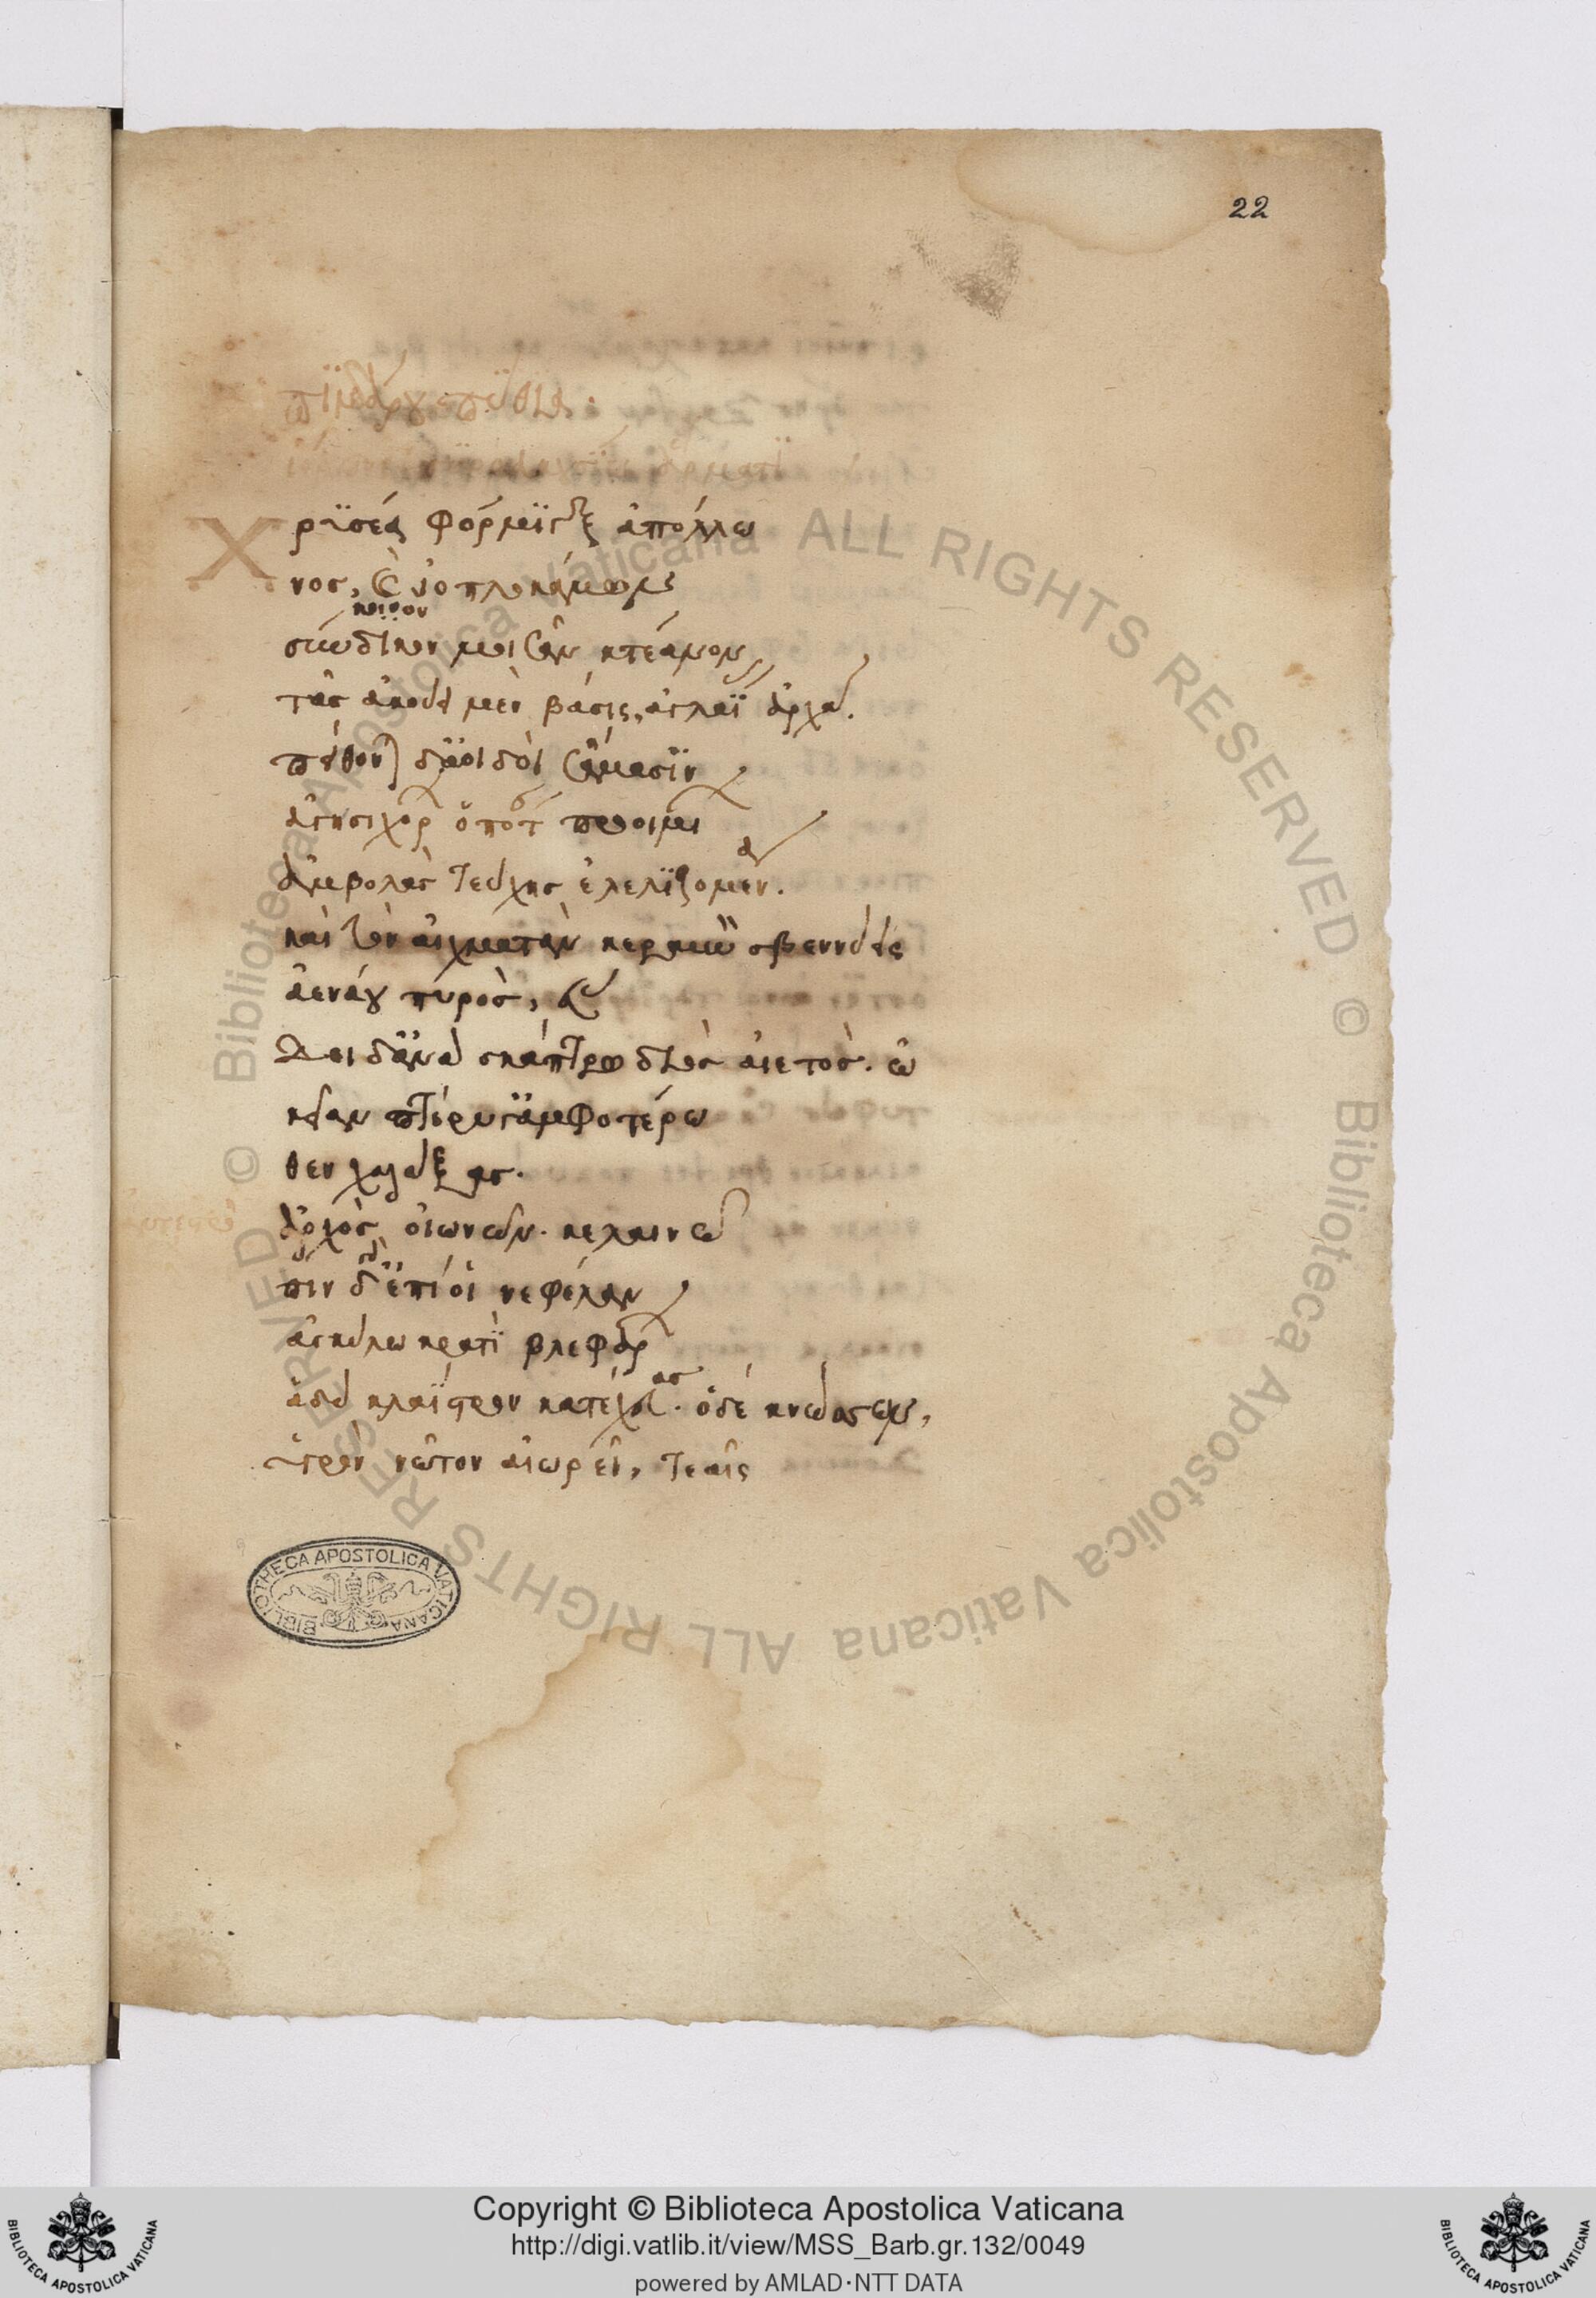 22
πινδάρου πύθια:
Χρϋσέα φόρμιγξ ἀπόλλω
νος, καὶ ἰοπλοκάμων
κοινον
σύνδικον μοισᾶν κτέανον
τᾶς ἀκούει μὲν βάσις, ἀγλαΐας ἀρχά.
πείθονται δ' ἀοιδοὶ σάμασιν
ἁγησιχόρων ὁπόταν προοιμίων
ἀμβολὰς τεύχης ἐλελιζομένα.
καὶ τὸν αἰχματὰν κεραυνὸν σβεννύεις
ἀενάου πυρός,
εὕδει δ' ἀνὰ σκάπτω διὸς αἰετός. ὠ
κεῖαν πτέρυγ' ἀμφοτέρω
θεν χαλάξας.
ἀρχὸς οἰωνῶν. κελαινῶ
πιν δ' ἐπί οἱ νεφέλαν
ἀγκύλω κρατὶ βλεφάρων
ἁδὺ κλάϊστρον κατέχευας. ὁ δὲ κνώσσων,
ὑγρὸν νῶτον αἰωρεῖ, τεαῖς
BIBLIOTHECA APOSTOLICA VATICANA
© Biblioteca Apostolica Vaticana ALL RIGHTS RESERVED
© Biblioteca Apostolica Vaticana ALL RIGHTS RESERVED
Copyright © Biblioteca Apostolica Vaticana
http://digi.vatlib.it/view/MSS_Barb.gr.132/0049
powered by AMLAD·NTT DATA
BIBLIOTECA APOSTOLICA VATICANA
BIBLIOTECA APOSTOLICA VATICANA